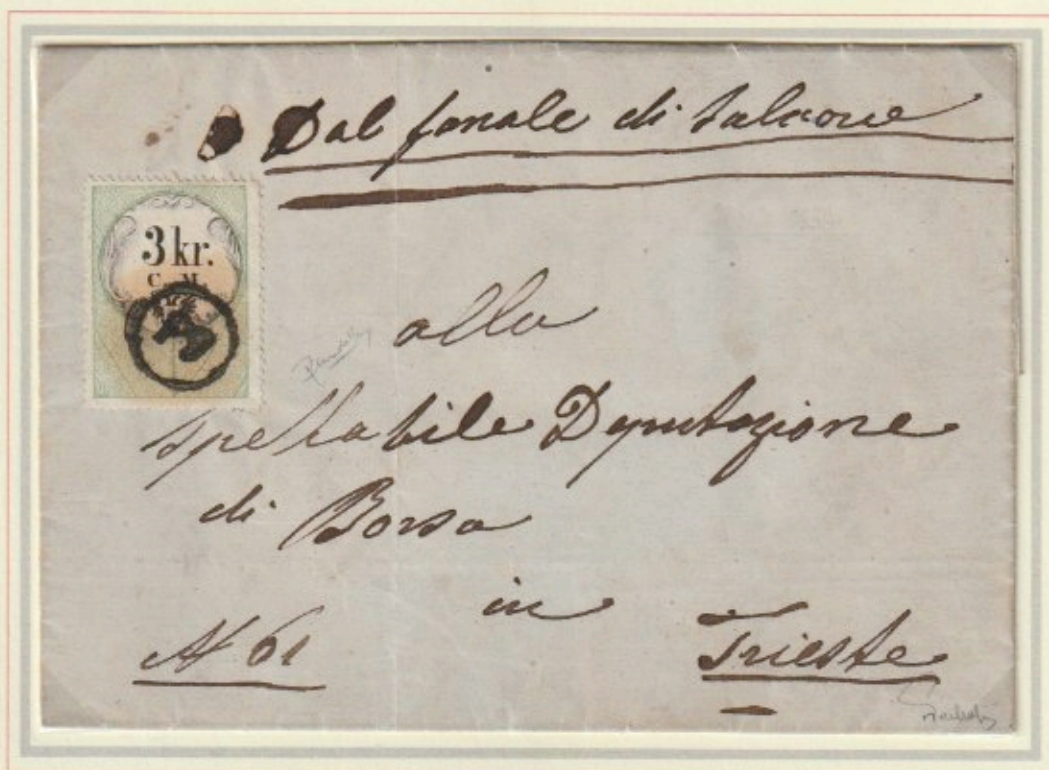 Dal fanale di Salvore
3 kr.
C. M.
alla
spettabile Deputazione
di Borsa
in
N 61
Trieste